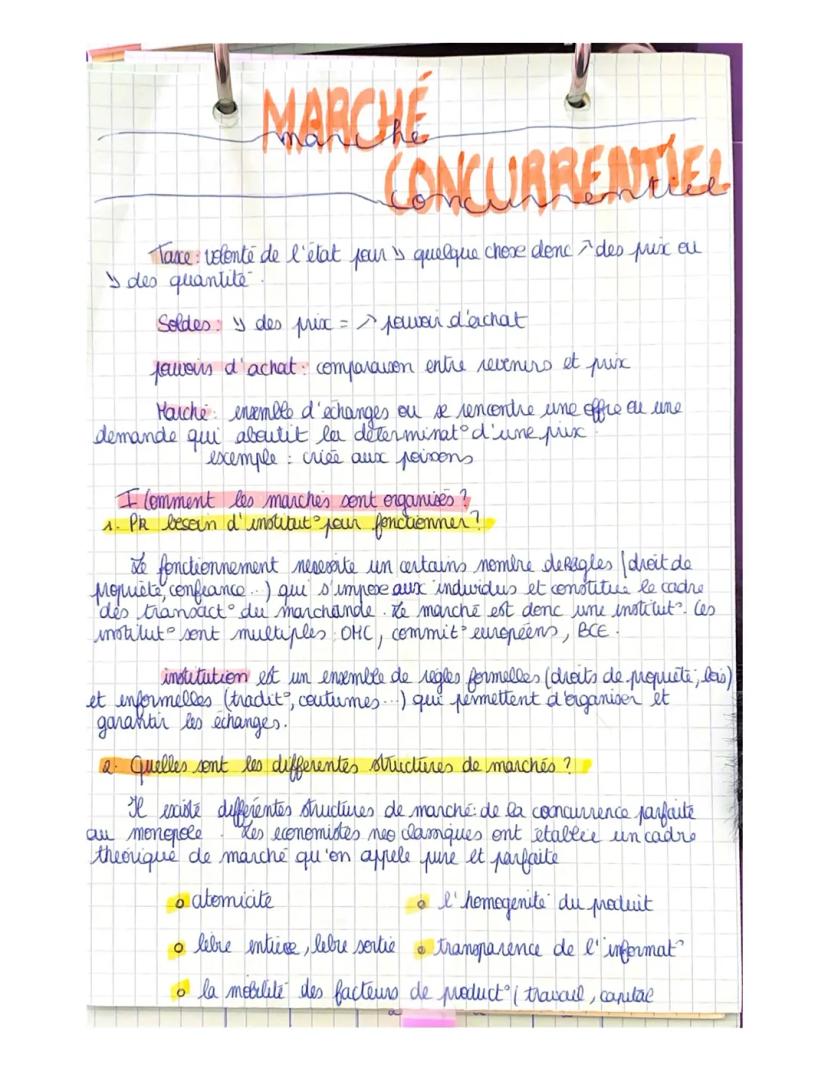 MARCHÉ
marché
CONCURRENTIEL
concurrentiel
Taxe : volonté de l'état pour ↘ quelque chose donc ↗ des prix ou
↘ des quantité.
Soldes : ↘ des prix = ↗ pouvoir d'achat
pouvoirs d'achat : comparaison entre revenus et prix
Marché : ensemble d'échanges ou se rencontre une offre ou une
demande qui aboutit la déterminat° d'une prix.
exemple : criée aux poissons
I Comment les marchés sont organisés ?
1. PK besoin d'institut° pour fonctionner ?
Le fonctionnement necessite un certains nombre de Règles (droit de
propriété, confiance...) qui s'impose aux individus et constitue le cadre
des transact° du marchande. Le marché est donc une institut°. Ces
institut° sont multiples : OMC, commit° européens, BCE.
institution est un ensemble de règles formelles (droits de propriété, lois)
et informelles (tradit°, coutumes...) qui permettent d'organiser et
garantir les échanges.
2. Quelles sont les differentes structures de marchés ?
Il existe différentes structures de marché : de la concurrence parfaite
au monopole. Les economistes neo classiques ont établie un cadre
théorique de marché qu'on appele pure et parfaite
o atomicite
o l'homogenité du produit
o libre entière, libre sortie
o transparence de l'informat°
o la mobilité des facteurs de product° ( travail, capital